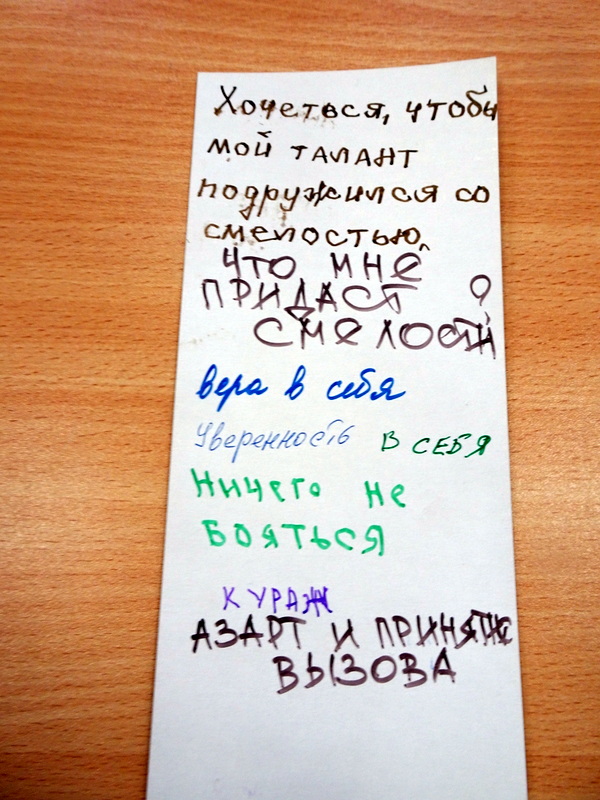 Хочеться, чтобы
мой талант
подружился со
смелостью,
что мне
ПРИДАСТ
СМЕЛОСТИ?
вера в себя
Уверенность в СЕБЯ
Ничего не
БОЯТЬСЯ
КУРАЖ
АЗАРТ И ПРИНЯТИЕ
ВЫЗОВА